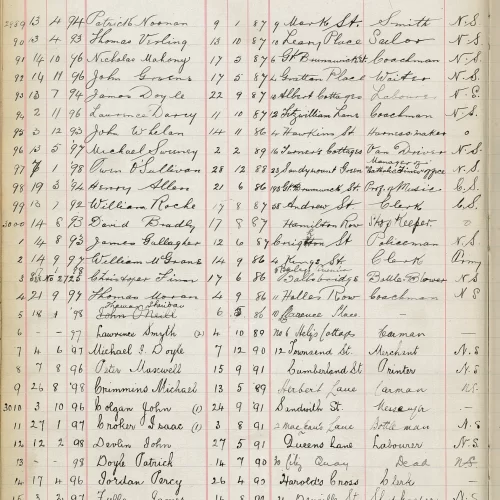 2989 13 4 94 Patrick Noonan 9 1 87 9 Mark St. Smith N.S.
90 13 4 93 Thomas Virling 13 10 87 10 Leary Place Sailor N.S.
91 14 10 96 Nicholas Mahony 17 5 86 Gt Brunswick St Coachman N.S.
92 14 11 96 John Greene 17 5 87 Grattan Place Writer N.S.
93 13 7 94 James Doyle 22 9 87 Albert Cottages Labourer N.S.
94 2 11 96 Laurence Darcy 11 10 87 12 Fitzwilliam Lane Coachman N.S.
95 3 12 93 John Whelan 14 11 86 4 Hawkins St Harness maker o
96 13 5 97 Michael Sweeney 2 2 89 16 Turner's Cottages Van Driver N.S.
97 7 1 '98 Owen O'Sullivan 28 12 88 23 Sandymount Green Manager of N.S.
98 19 3 '94 Henry Allen 21 6 86 Gt Brunswick St. Prof. of Music C.S.
99 13 1 '92 William Roche 17 8 87 38 Andrew St Clerk C.S.
3000 14 8 93 David Bradly 17 8 87 Hamilton Row Shop Keeper o
1 14 8 93 James Gallagher 12 6 87 Creighton St Policeman N.S.
2 14 9 97 William McGrane 14 9 86 4 Kings St Clerk Army
3 See No 2726 Christopher Finn 17 6 86 Ballsbridge Bottle-Blower N.S.
4 21 9 97 Thomas Moran 4 9 86 11 Halles Row Coachman N.S
5 18 1 '98 Thomas Sheridan John O'Neill 6 86 10 Clarence Place —
6 — — 97 Lawrence Smyth (2) 4 10 89 No 6 Cottages Carman —
7 4 6 97 Michael J. Doyle 7 12 90 12 Townsend St. Merchant N.S
8 7 8 96 Peter Maxwell 15 9 91 Cumberland St. Printer N.S.
9 26 8 '98 Crimmins Michael 13 5 89 Herbert Lane Carman N.S.
3010 3 10 96 Colgan John (1) 24 9 '91 Sandwith St. Messenger —
11 27 1 97 Croker Isaac (1) 3 8 91 2 Lane Bottle man N.S
12 12 2 98 Devlin John 27 5 91 Queens Lane Labourer N.S.
13 — '98 Doyle Patrick 14 7 90 30 City Quay Dead N.S
14 17 4 96 Jordan Percy 26 4 90 Harold's Cross Clerk —